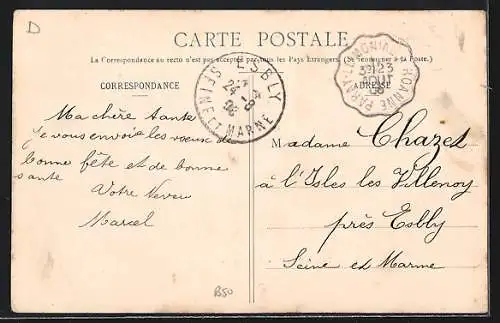 D
CARTE POSTALE
La Correspondance au recto n'est pas acceptée par tous les Pays Etrangers. (Se renseigner à la Poste.)
CORRESPONDANCE
ADRESSE
ESBLY
SEINE-ET-MARNE
24 - 8
PARAY-LE-MONIAL
ROANNE
23
AOUT
08
Ma chère tante
Je vous envoie les vœux de
bonne fête et de bonne
sante
Votre Neveu
Marcel
Madame Chazet
à l'Isles les Villenoy
près Esbly
Seine et Marne
B50